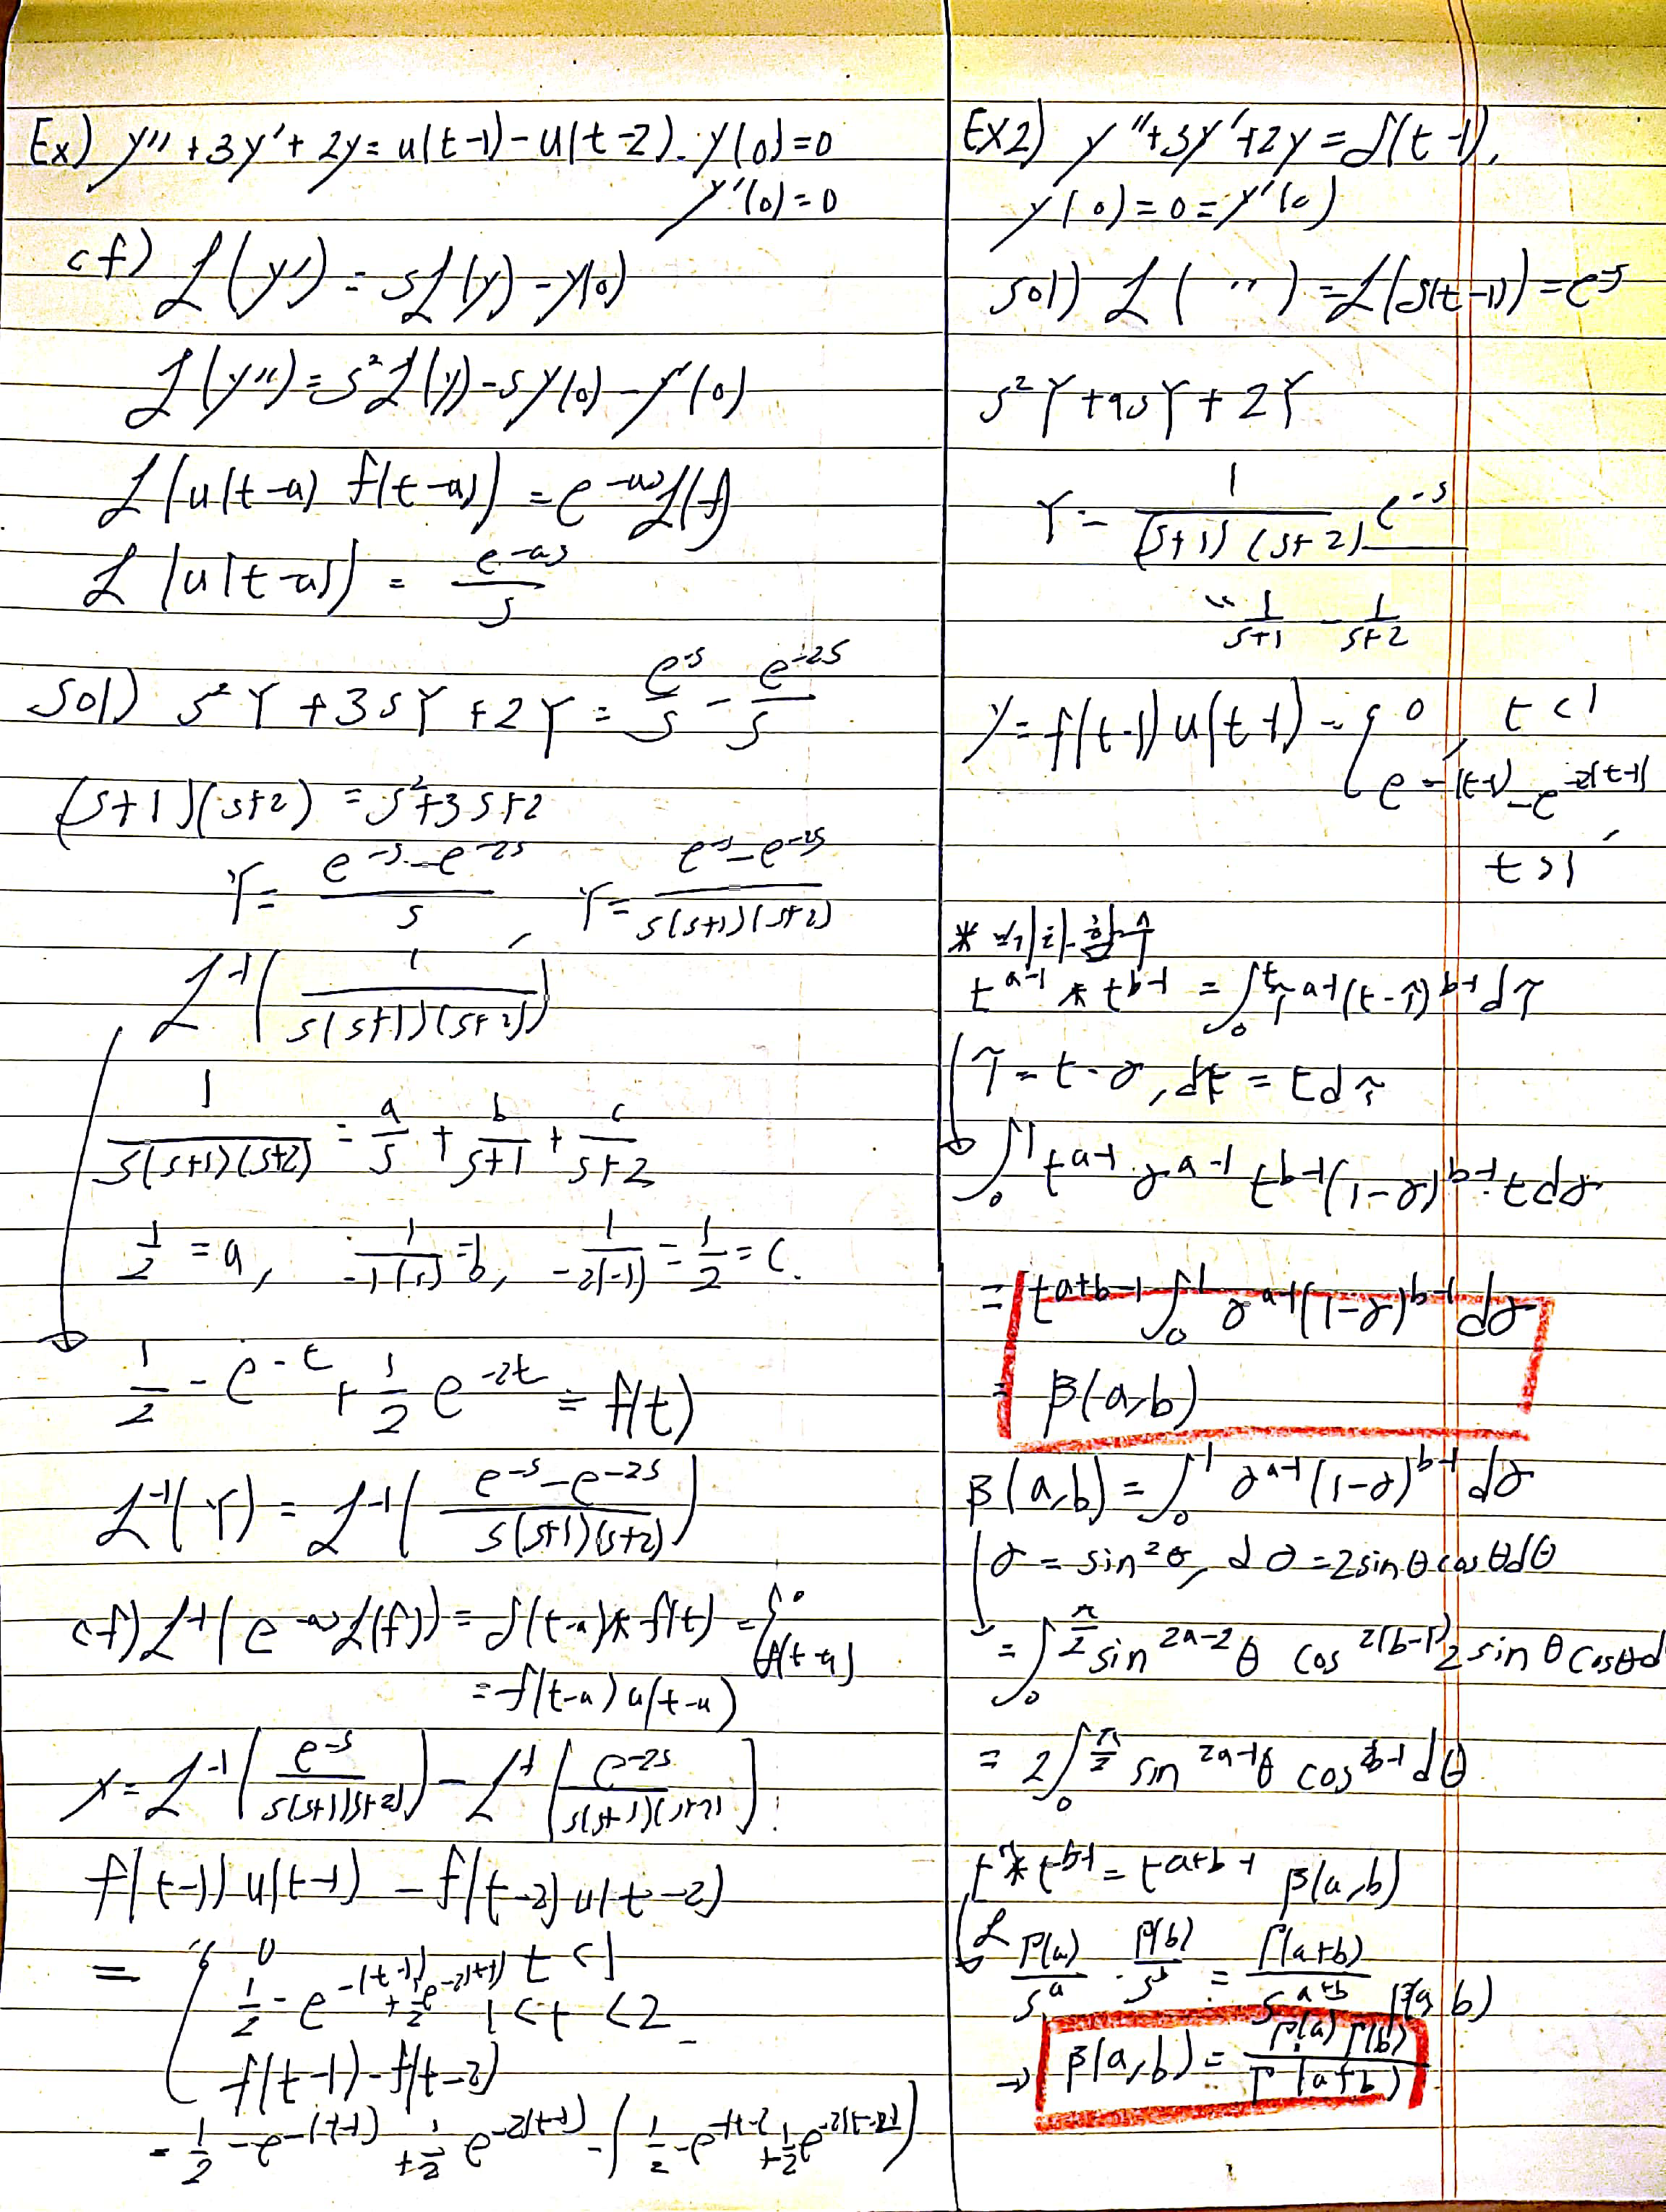 Ex) y'' + 3y' + 2y = u(t-1) - u(t-2). y(0)=0
y'(0)=0
cf) ℒ(y') = sℒ(y) - y(0)
ℒ(y'') = s²ℒ(y) - sy(0) - y'(0)
ℒ(u(t-a) f(t-a)) = e^{-as}ℒ(f)
ℒ(u(t-a)) = e^{-as}/s
sol) s²Y + 3sY + 2Y = e^{-s}/s - e^{-2s}/s
(s+1)(s+2) = s²+3s+2
Y = (e^{-s} - e^{-2s})/s , Y = (e^{-s} - e^{-2s})/(s(s+1)(s+2))
ℒ^{-1}(1/(s(s+1)(s+2)))
1/(s(s+1)(s+2)) = a/s + b/(s+1) + c/(s+2)
1/2 = a, 1/(-1(1)) = b, 1/(-2(-1)) = 1/2 = c.
1/2 - e^{-t} + 1/2 e^{-2t} = f(t)
ℒ^{-1}(Y) = ℒ^{-1}((e^{-s} - e^{-2s})/(s(s+1)(s+2)))
cf) ℒ^{-1}(e^{-as}ℒ(f)) = δ(t-a)*f(t) = { 0
f(t-a)
= f(t-a)u(t-a)
y = ℒ^{-1}(e^{-s}/(s(s+1)(s+2))) - ℒ^{-1}(e^{-2s}/(s(s+1)(s+2)))
f(t-1)u(t-1) - f(t-2)u(t-2)
= { 0 t<1
1/2 - e^{-(t-1)} + 1/2 e^{-2(t-1)} 1<t<2
f(t-1) - f(t-2)
= 1/2 - e^{-(t-1)} + 1/2 e^{-2(t-1)} - (1/2 - e^{-(t-2)} + 1/2 e^{-2(t-2)})
Ex2) y'' + 3y' + 2y = δ(t-1),
y(0) = 0 = y'(0)
sol) ℒ( " ) = ℒ(δ(t-1)) = e^{-s}
s²Y + 9sY + 2Y
Y = 1/((s+1)(s+2)) e^{-s}
" 1/(s+1) - 1/(s+2)
y = f(t-1)u(t-1) = { 0 , t<1
e^{-(t-1)} - e^{-2(t-1)} ,
t>1
* 베타함수
t^{a-1} * t^{b-1} = ∫₀^t τ^{a-1}(t-τ)^{b-1}dτ
τ = t·γ, dτ = tdγ
∫₀^1 t^{a-1} γ^{a-1} t^{b-1}(1-γ)^{b-1}·tdγ
= t^{a+b-1} ∫₀^1 γ^{a-1}(1-γ)^{b-1}dγ
= β(a,b)
β(a,b) = ∫₀^1 γ^{a-1}(1-γ)^{b-1}dγ
γ = sin²θ, dγ = 2sinθcosθdθ
= ∫₀^{π/2} sin^{2a-2}θ cos^{2(b-1)} 2sinθcosθd
= 2∫₀^{π/2} sin^{2a-1}θ cos^{2b-1}dθ
t^{a-1} * t^{b-1} = t^{a+b-1} β(a,b)
ℒ Γ(a)/s^a · Γ(b)/s^b = Γ(a+b)/s^{a+b} β(a,b)
→ β(a,b) = Γ(a)Γ(b)/Γ(a+b)